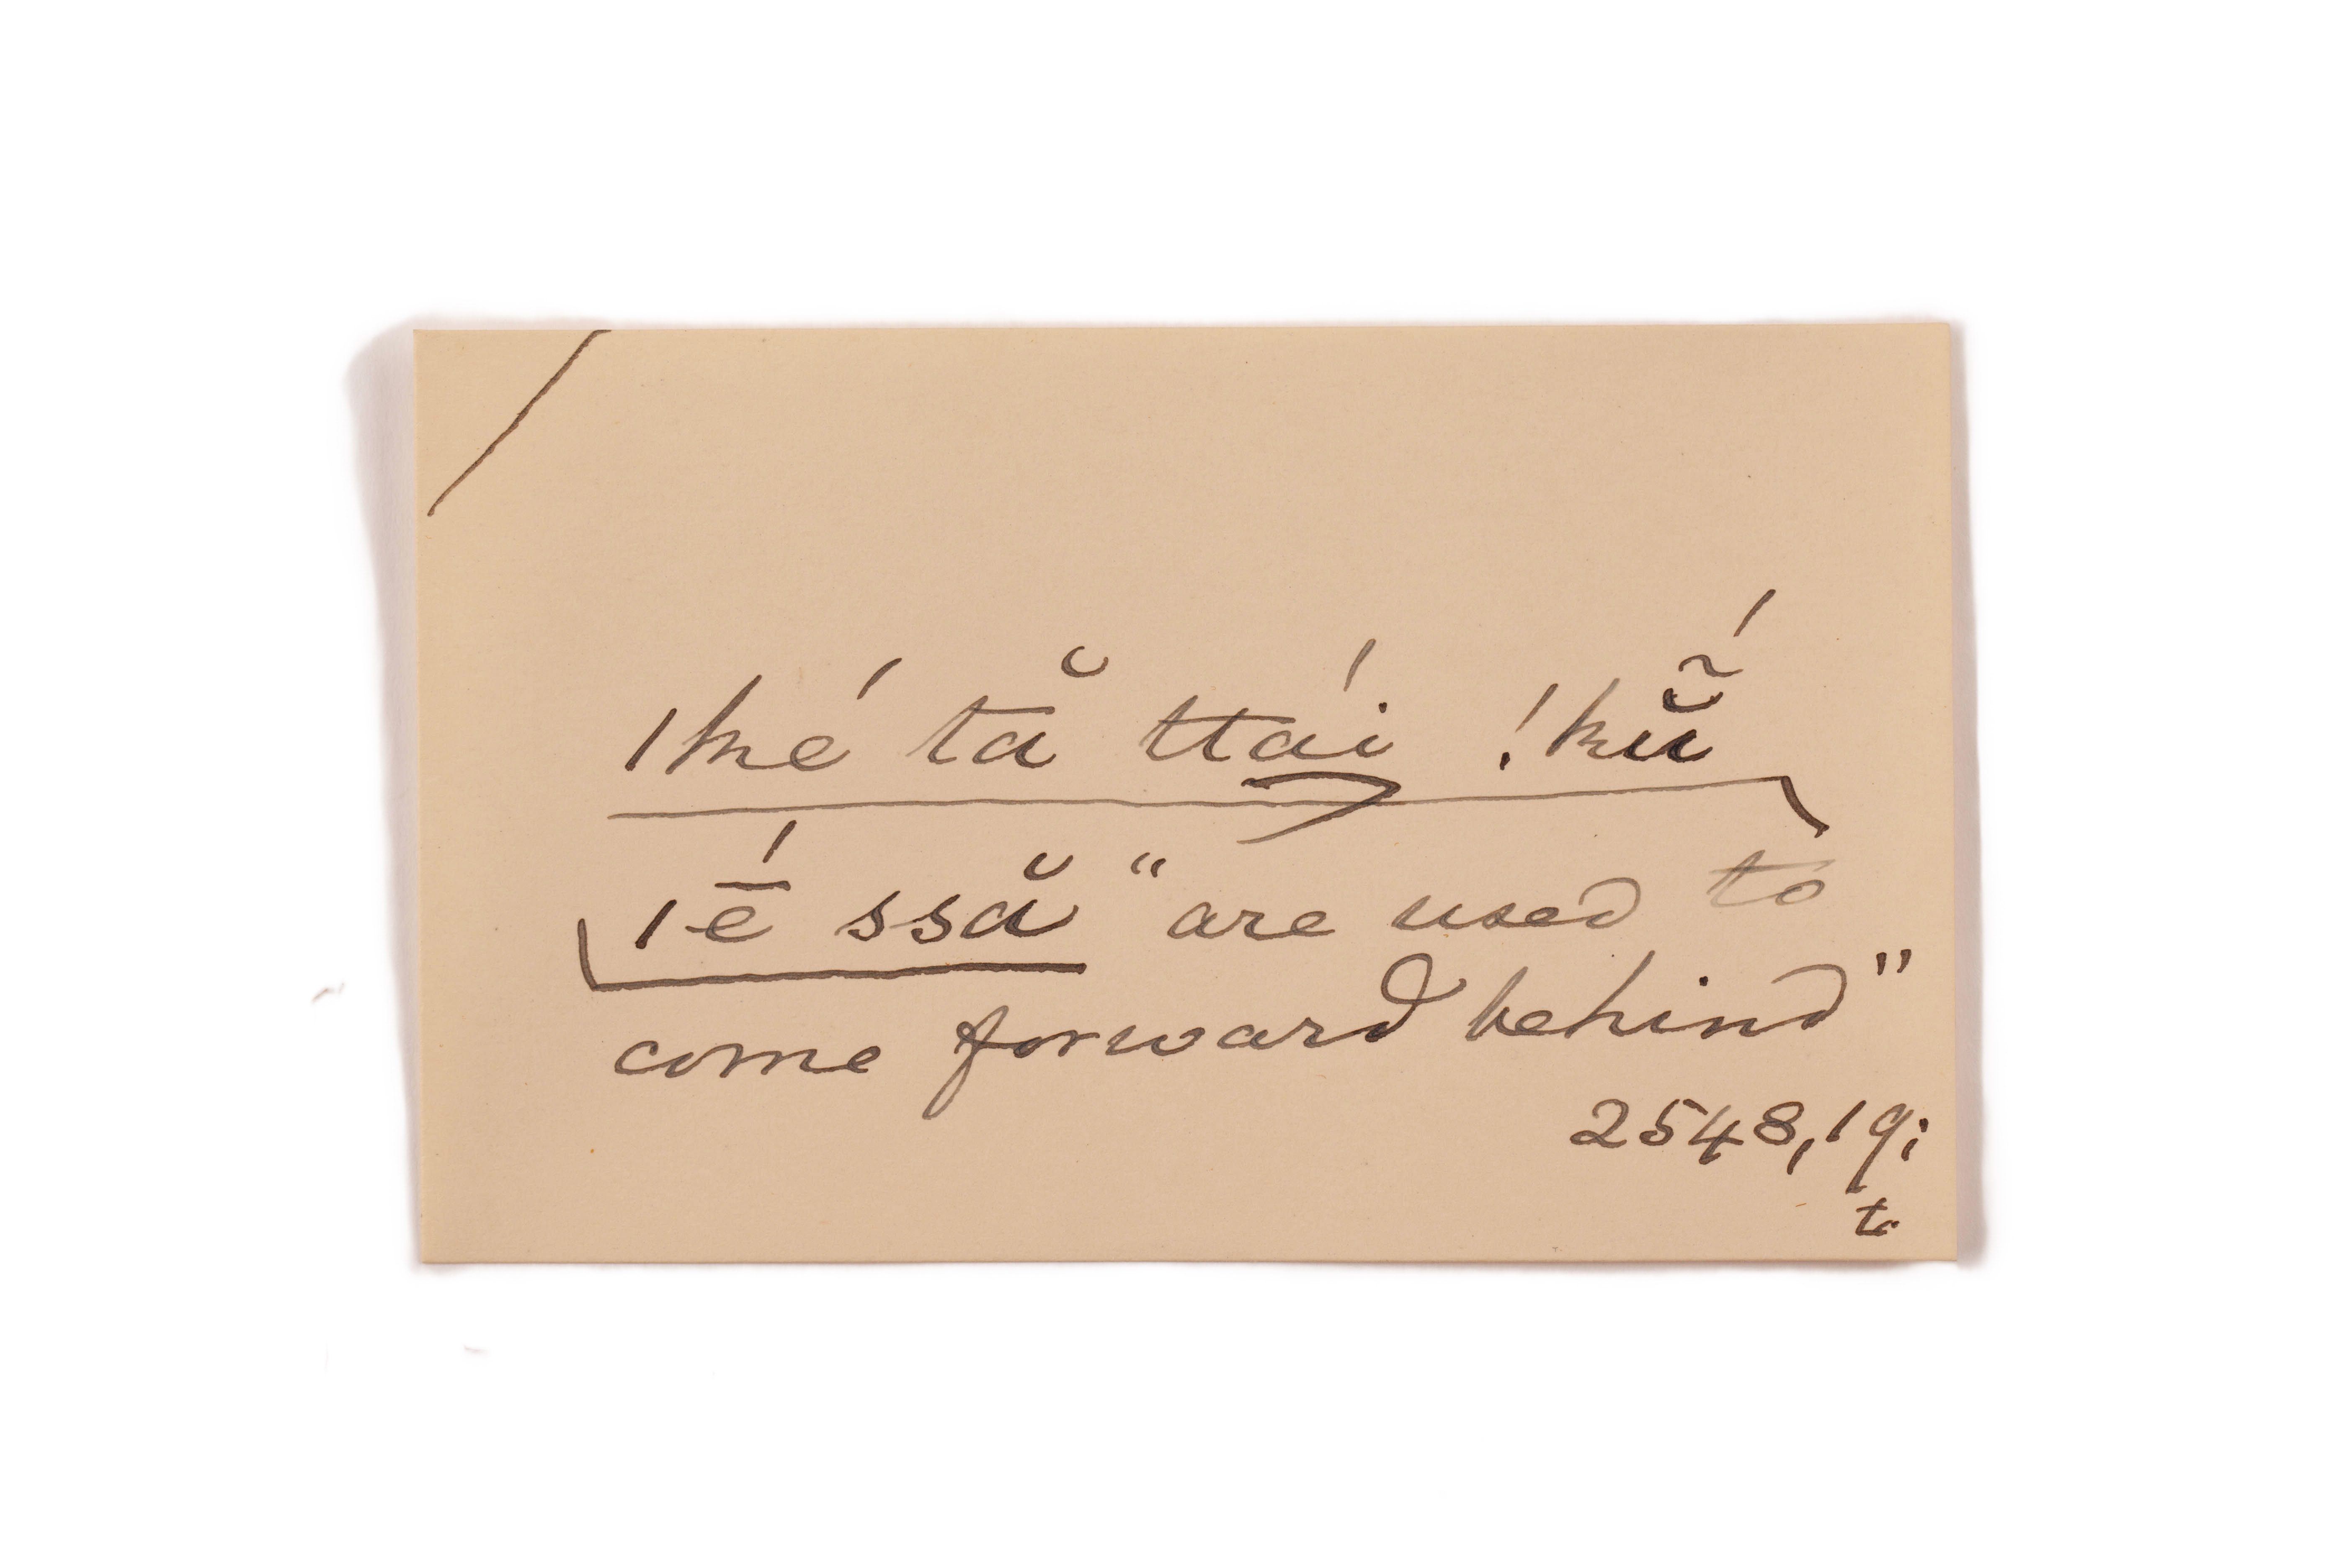 ǀké tă ttái ǃkṹ̆
ǀḗ ssă “are used to
come forward behind”
2548, 19;
to